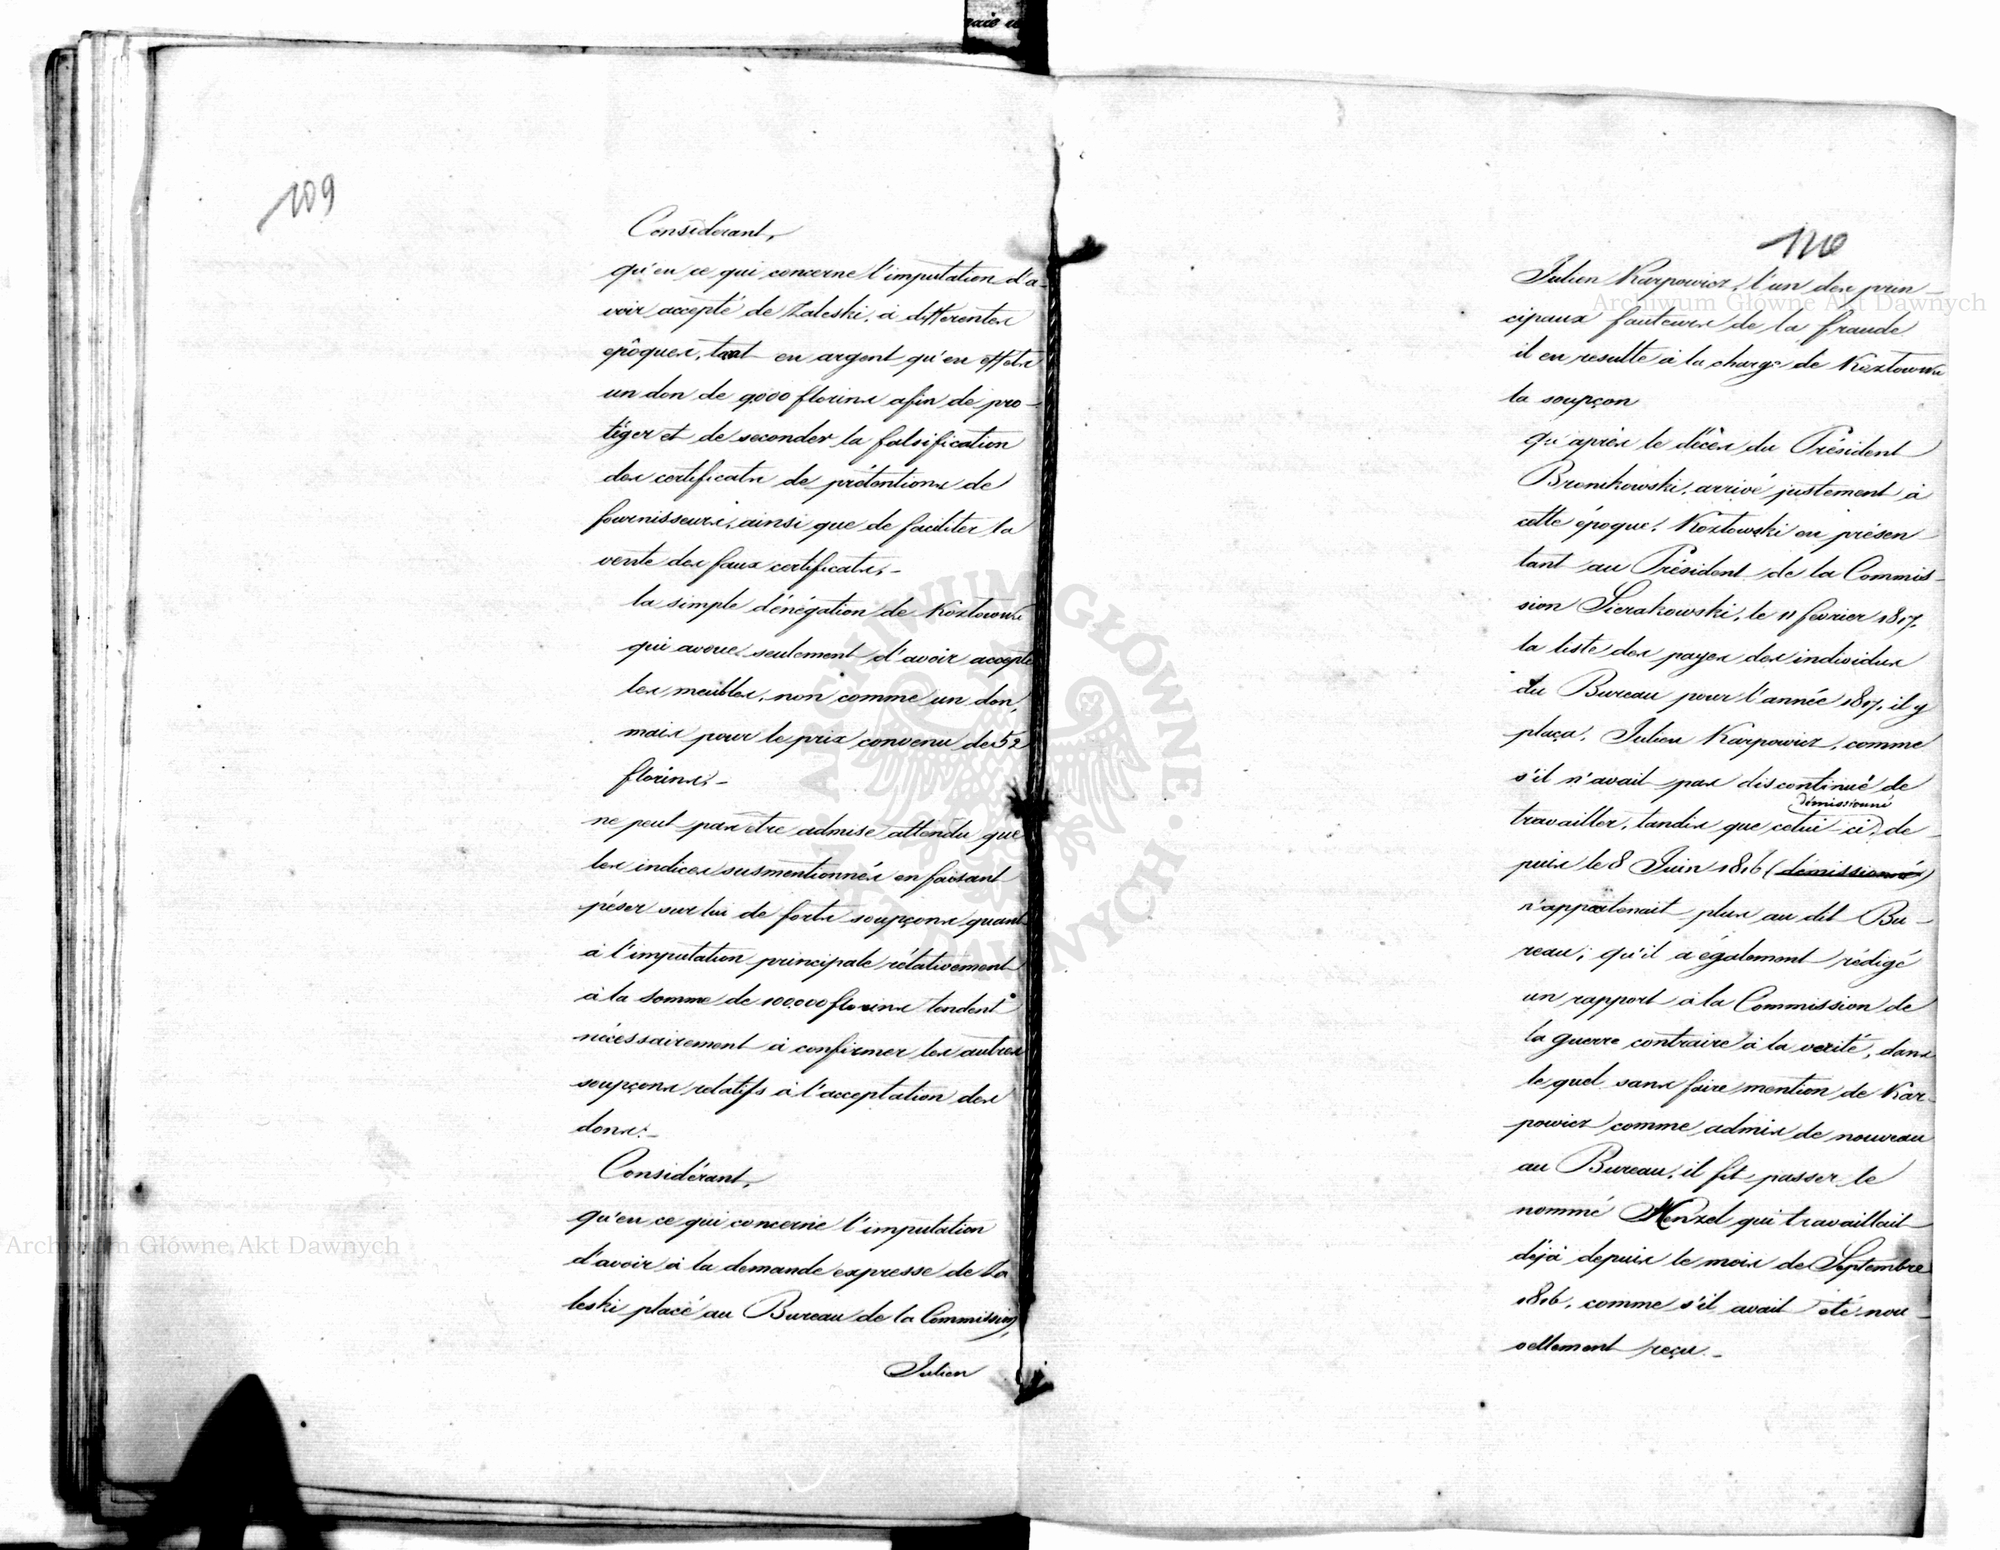 109
Considérant,
qu'en ce qui concerne l'imputation d'a-
voir accepté de Zaleski, à differentes
epôques, tant en argent qu'en effets
un don de 9000 florins afin de pro-
téger et de seconder la falsification
des certificats de prétentions de
fournisseurs, ainsi que de faciliter la
vente des faux certificats,-
la simple dénégation de Kozlowski
qui avoue seulement d'avoir accepté
les meubles, non comme un don,
mais pour le prix convenu de 52
florins,-
ne peut pas etre admise attendu que
les indices susmentionnés en faisant
péser sur lui de forts soupçons quant
à l'imputation principale rélativement
à la somme de 100000 florins tendent
nécessairement à confirmer les autres
soupçons relatifs à l'acceptation des
dons.-
Considérant,
qu'en ce qui concerne l'imputation
d'avoir à la demande expresse de Za
leski placé au Bureau de la Commission,
Julien
110
Julien Karpowicz, l'un des prin-
cipaux fauteurs de la fraude
il en resulte à la charge de Kozlowski
la soupçon
qu'après le décès du Président
Bronikowski, arrivé justement à
cette époque, Kozlowski en présen-
tant au Président de la Commis-
sion Sierakowski, le 11 fevrier 1817.
la liste des payes des individus
du Bureau pour l'année 1817, il y
plaça, Julien Karpowicz, comme
s'il n'avait pas discontinué de
démissionné
travailler, tandis que celui-ci, de-
puis le 8 Juin 1816 (démissionné)
n'appartenait plus au dit Bu-
reau; qu'il a également rédigé
un rapport à la Commission de
la guerre contraire à la verité, dans
le quel sans faire mention de Kar-
powicz comme admis de nouveau
au Bureau, il fit passer le
nommé Menzel qui travaillait
déjà depuis le mois de Septembre
1816, comme s'il avait été nou-
vellement reçu.-
Archiwum Główne Akt Dawnych
Archiwum Główne Akt Dawnych
ARCHIWUM GŁÓWNE AKT DAWNYCH